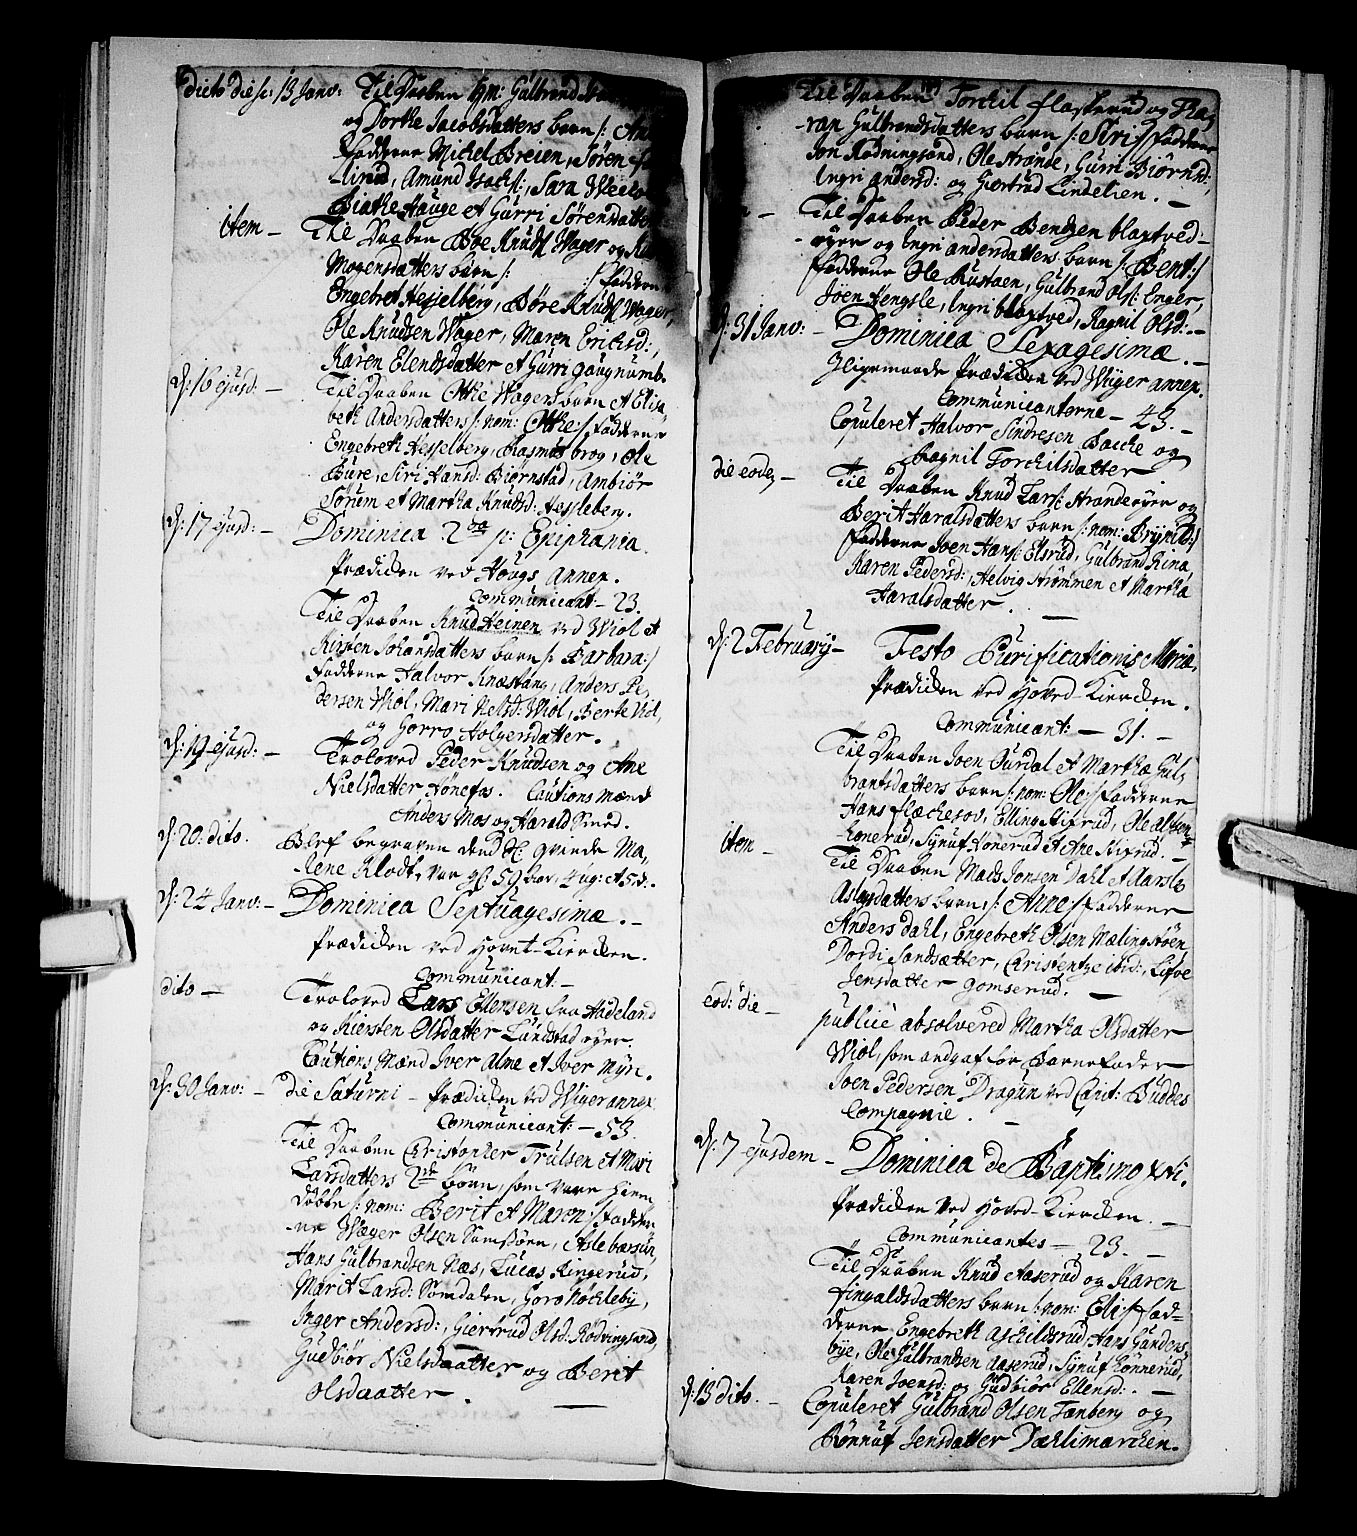 dicto die s: 13 Janv: Til Daaben hm: Gulbrand
og Dorthe Jacobsdatters barn /: Ane
fadderne Michel Breien, Søren
Lund, Amund Isachs:, Sara
Birthe Hauge et Gurri Sørensdatter
item — Til Daaben Boe Knuds: Wager og
Mogensdatters barn /: :/ faddern
Engebret Hesselberg, Børe Knuds: Wager,
Ole Knudsen Wager, Maren Ericksd:,
Karen Elendsdatter et Gurri Gaugnumb.
d: 16 ejusd: — Til Daaben Otthe Wagers barn et Elisa,
beth Andersdatters /: nom: Otthe :/ fadderne
Engebreth Hesselberg, Rasmus brog, Ole
Bure, Siri Hansd: Biørnstad, Ambiør
Sørum et Martha Knudsd: Hesleberg.
d: 17 ejusd: — Dominica 2da p: Epiphania.
Prædicken ved Hougs Annex.
Communicant — 23.
Til Daaben Knud Heinen ved Wiol et
Kirsten Johansdatters barn /: Barbara :/
fadderne Halvor Kinæstang, Anders Pe,
dersen Wiol, Mari Nelsd: Wiol, Berte Viol,
og Gorro Holgersdatter.
d: 19 ejusd: — Troloved Peder Knudsen og Ane
Nielsdatter Hønefos. Cautions Mænd
Anders Mos og Harald Smed.
d: 20. dito. Blef begraven dend Sl: qvinde Ma,
Rene Klodt, var gl: 59 aar, 4 ug: et 5 d.
d: 24 Janv: — Dominica Septuagesimæ. —
Prædicken ved Hovet-Kiercken.
Communicant: —
dito — Troloved Lars Ellensen fra Hadeland
og Kiersten Olsdatter Lundstad øyer.
Cautions Mænd Iver Alme et Iver Myn.
d: 30 Janv: — die Saturni — Prædicken ved Wiger annex
Communicant: — 53.
Til Daaben Christopher Trulsen et Mari
Larsdatters 2de børn, som vare hiem
døbte /: nom: Berit et Maren :/ fadder
ne Wæger Olsen Samsiøen, Asle barsun,
Hans Gulbrandsen Næs, Lucas Ringerud,
Marit Larsd: Somdalen, Goro Høckleby,
Inger Andersd:, Giertrud Olsd: Rødningsand,
Gudbiør Nielsdaatter og Berit
Olsdaatter.
Til Daaben Torckil flaskerud og Ka,
ran Gulbrandsdatters barn /: Siri :/ fadderne
Jon Rødningsand, Ole Strande, Gurri Biørnsd:,
Ingri Andersd: og Giertrud Lindelien. —
— Til Daaben Peder Bendzen blaxtved-
øyer og Ingri Andersdatters barn /: Bent :/
fadderne Ole Rustaen, Gulbrand Ols: Enger,
Joen Hengsle, Ingri blaxtved, Ragnil Olsd: —
d: 31 Janv: — Dominica Sexagesimæ. —
Ligemaade Prædicken ved Wiger annex.
Communicanterne — 43. —
Copuleret Halvor Sindresen Backe og
Ragnil Torckilsdatter
die eodem — Til Daaben Knud Lars: Strandeøyer og
Berit Haralsdatters barn /: nom: Brynild :/
fadderne Joen Hans: Elsrud, Gulbrand Kina
Karen Pedersd:, Helvig Strømmen et Martha
Haralsdatter. —
d: 2 February — Festo Purificationis Maria,
Prædicken ved Hoved-Kiercken.
Communicant: — 31. —
Til Daaben Joen Surdal et Martha Gul,
brantsdatters barn /: nom: Ole :/ fadderne
Hans flæchesov, Elling Kifrud, Ole Alfsen
Honerud, Synuf Honerud et Ane Kifrud. —
item — Til Daaben Mads Jonsen Dahl et Aarsle
Aslagsdatters barn, /: Anne :/ fadderne
Anders Dahl, Engebreth Olsen Mælingstøen
Dordi Sandsætter, Christentze ibid:, Lifve
Jensdatter Gomserud. —
eod: die — publicè absolvered Martha Olsdatter
Wiol, som andgaf for Barnefader
Joen Pedersen Dragun ved Capit: Buddes
Compagnie. —
d: 7 ejusdem — Dominica de Baptismo xsti.
Prædicken ved Hoved-Kiercken. —
Communicantes — 23. —
Til Daaben Knud Aaserud og Karen
Fingalsdatters barn /: nom: Eli :/ fad-
derne Engebreth Aschildsrud, Hans Gunders
bye, Ole Gulbrandsen Aaserud, Synuf Honnerud,
Karen Joensd: og Gudbiør Ellensd:. —
d: 13 dito. — Copuleret Gulbrand Olsen Tænberg og
Rønnuf Jensdatter Dæhlimarcken.